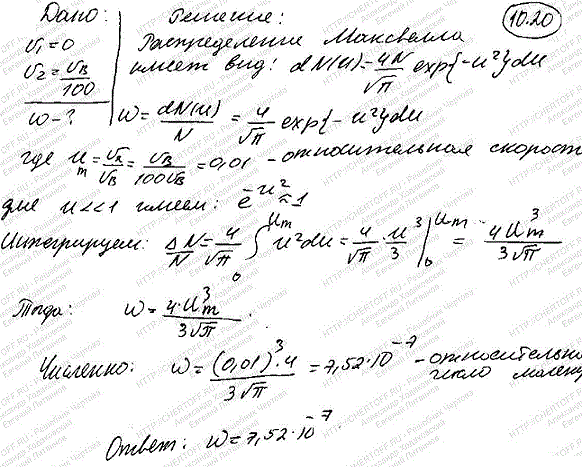 Дано:
Решение:
10.20
v₁=0
v₂=vв/100
w-?
Распределение Максвелла
имеет вид: dN(u)=4N/√π exp{-u²}du
w=dN(u)/N = 4/√π exp{-u²}du
где uₘ=vₓ/vв=vв/100vв=0,01 - относительная скорост
для u<<1 имеем: e^-u²≈1
Интегрируем: ΔN/N=4/√π ∫₀^uₘ u²du=4/√π·u³/3|₀^uₘ = 4uₘ³/3√π
Тогда: w=4·uₘ³/3√π.
Численно: w=(0,01)³·4/3√π=7,52·10⁻⁷ - относительно
число молек
Ответ: w=7,52·10⁻⁷.
HTTP://CHERTOFF.RU - Решебник Чертова
Александр Чертов
Евгений Литвинов